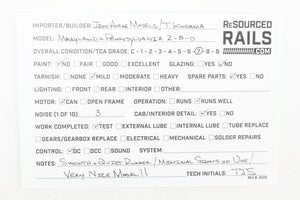 IMPORTER/BUILDER: IRON HORSE MODELS/T KODAMA
RESOURCED
RAILS
.COM
MODEL: MARYLAND + PENNSYLVANIA 2-8-0
OVERALL CONDITION/TCA GRADE: C - 1 - 2 - 3 - 4 - 5 - 6 - 7 - 8 - 9
PAINT: NO FAIR GOOD EXCELLENT GLAZING: YES NO
TARNISH: NONE MILD MODERATE HEAVY SPARE PARTS: YES NO
LIGHTING: FRONT REAR INTERIOR OTHER:
MOTOR: CAN OPEN FRAME OPERATION: RUNS RUNS WELL
NOISE (1 OF 10): 3 CAB/INTERIOR DETAIL: YES NO
WORK COMPLETED: TEST EXTERNAL LUBE INTERNAL LUBE TUBE REPLACE
GEARS/GEARBOX REPLACE ELECTRICAL MECHANICAL SOLDER REPAIRS
CONTROL: DC DCC SOUND SYSTEM:
NOTES: SMOOTH + QUIET RUNNER / MINIMAL SIGNS OF USE /
VERY NICE MODEL !! TECH INITIALS: TJS